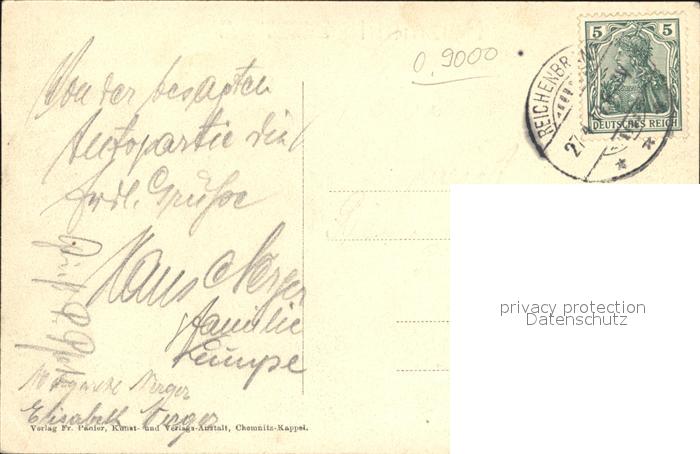 0.9000
5 5
DEUTSCHES REICH
REICHENBR
27.4
Von der besagten
Autopartie die
frdl. Grüße
Hans Nerger
Familie
Kümpe
Nerger
Elisabeth Nerger
privacy protection
Datenschutz
Verlag Fr. Panier, Kunst- und Verlags-Anstalt, Chemnitz-Kappel.